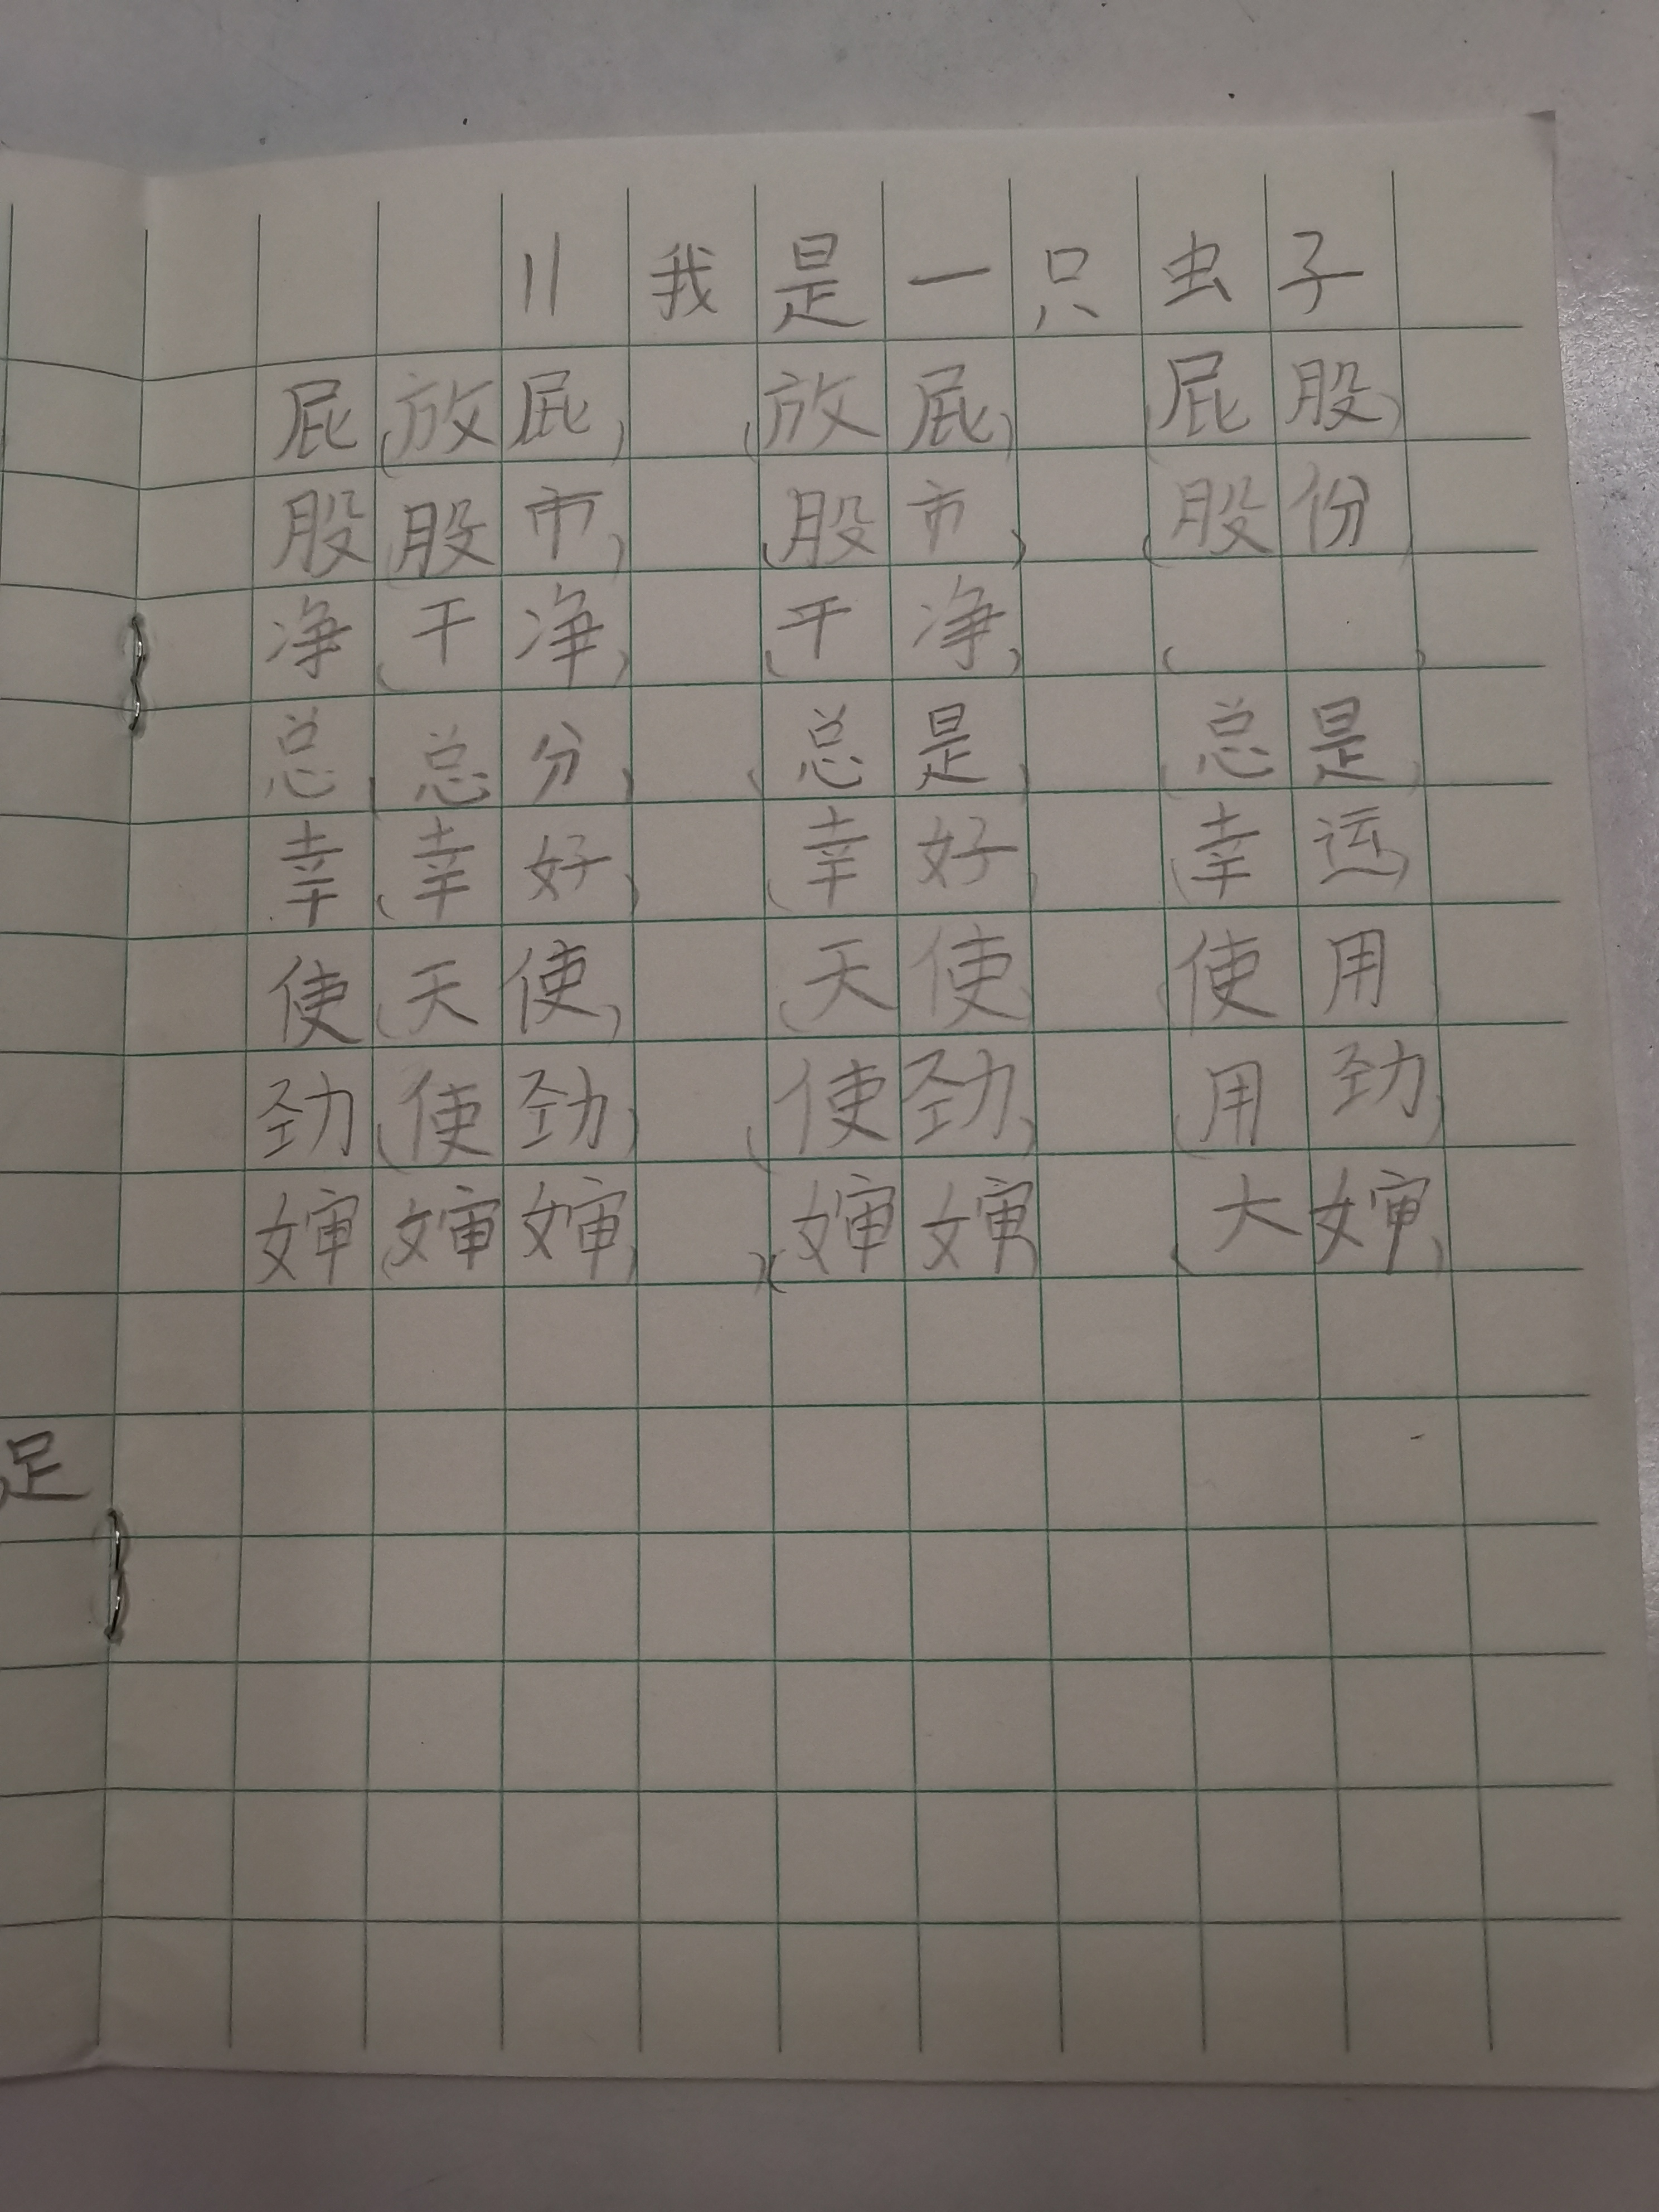 11 我是一只虫子
屁(放屁) (放屁) (屁股)
股(股市) (股市) (股份)
净(干净) (干净) ( )
总(总分) (总是) (总是)
幸(幸好) (幸好) (幸运)
使(天使) (天使) (使用)
劲(使劲) (使劲) (用劲)
婶(婶婶) (婶婶) (大婶)
足